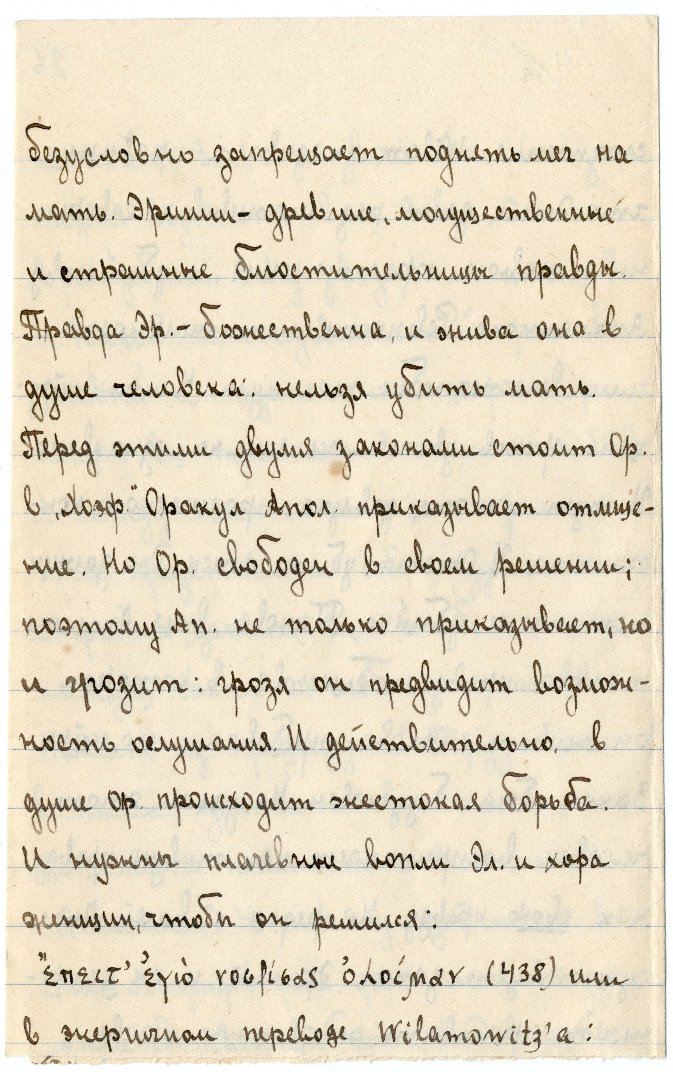 безусловно запрещает поднять меч на
мать. Эринии – древние, могущественные
и страшные блюстительницы правды.
Правда Эр. – божественна, и жива она в
душе человека: нельзя убить мать.
Перед этими двумя законами стоит Ор.
в „Хоэф.“ Оракул Апол. приказывает отмще-
ние. Но Ор. свободен в своем решении;
поэтому Ап. не только приказывает, но
и грозит: грозя он предвидит возмож-
ность ослушания. И действительно, в
душе Ор. происходит жестокая борьба.
И нужны плачевные вопли Эл. и хора
женщин, чтобы он решился:
ἔπειτ’ ἐγὼ νοσφίσας ὀλοίμαν (438) или
в энергичном переводе Wilamowitz’a: